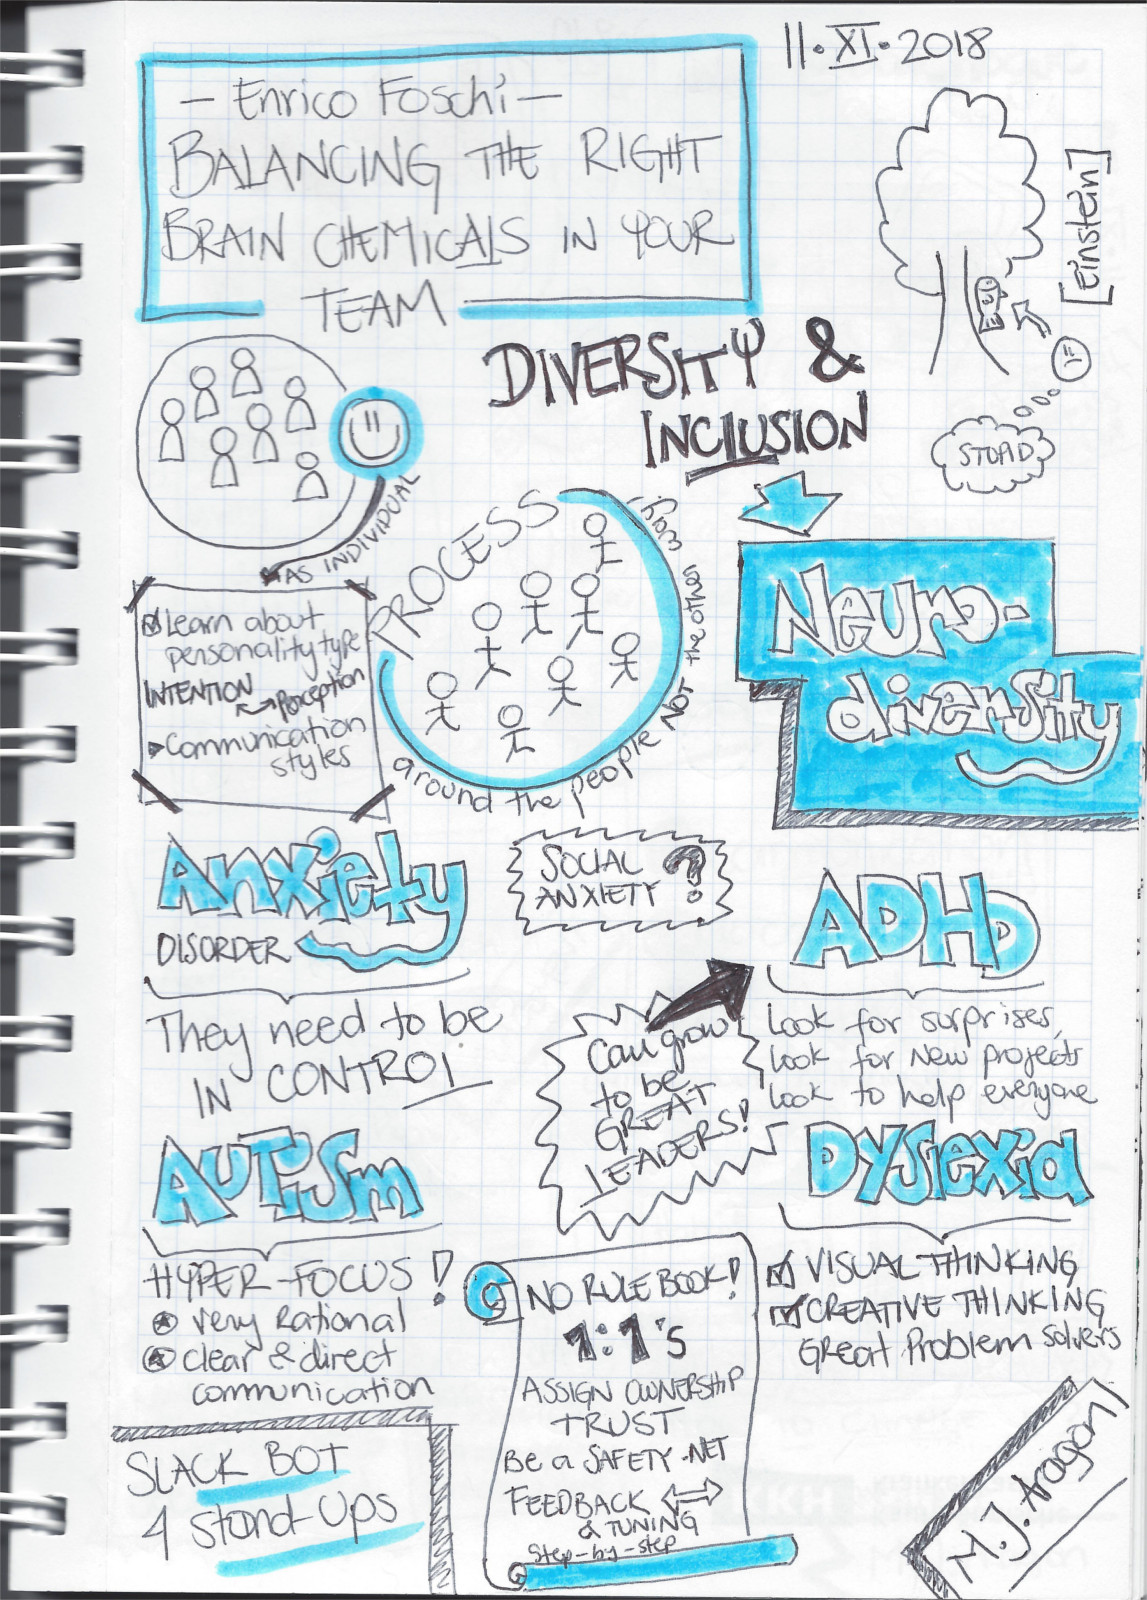 11·XI·2018
— Enrico Foschi —
BALANCING THE RIGHT
BRAIN CHEMICALS IN YOUR
TEAM
[einstein]
STUPID
DIVERSITY &
INCLUSION
AS INDIVIDUAL
Learn about
personality type
INTENTION
perception
Communication
styles
PROCESS
around the people NOT the other way!
Neuro-
diversity
Anxiety
DISORDER
They need to be
IN CONTROL
SOCIAL
ANXIETY ?
ADHD
Look for surprises,
Look for New projects
Look to help everyone
Can grow
to be
GREAT
LEADERS!
AUTiSm
HYPER-FOCUS!
very Rational
clear & direct
communication
Dyslexia
VISUAL THINKING
CREATIVE THINKING
Great Problem solvers
NO RULE BOOK!
1:1's
ASSIGN OWNERSHIP
TRUST
Be a SAFETY-NET
FEEDBACK
& TUNING
Step-by-step
SLACK BOT
4 stand-ups
M.J. Aragon